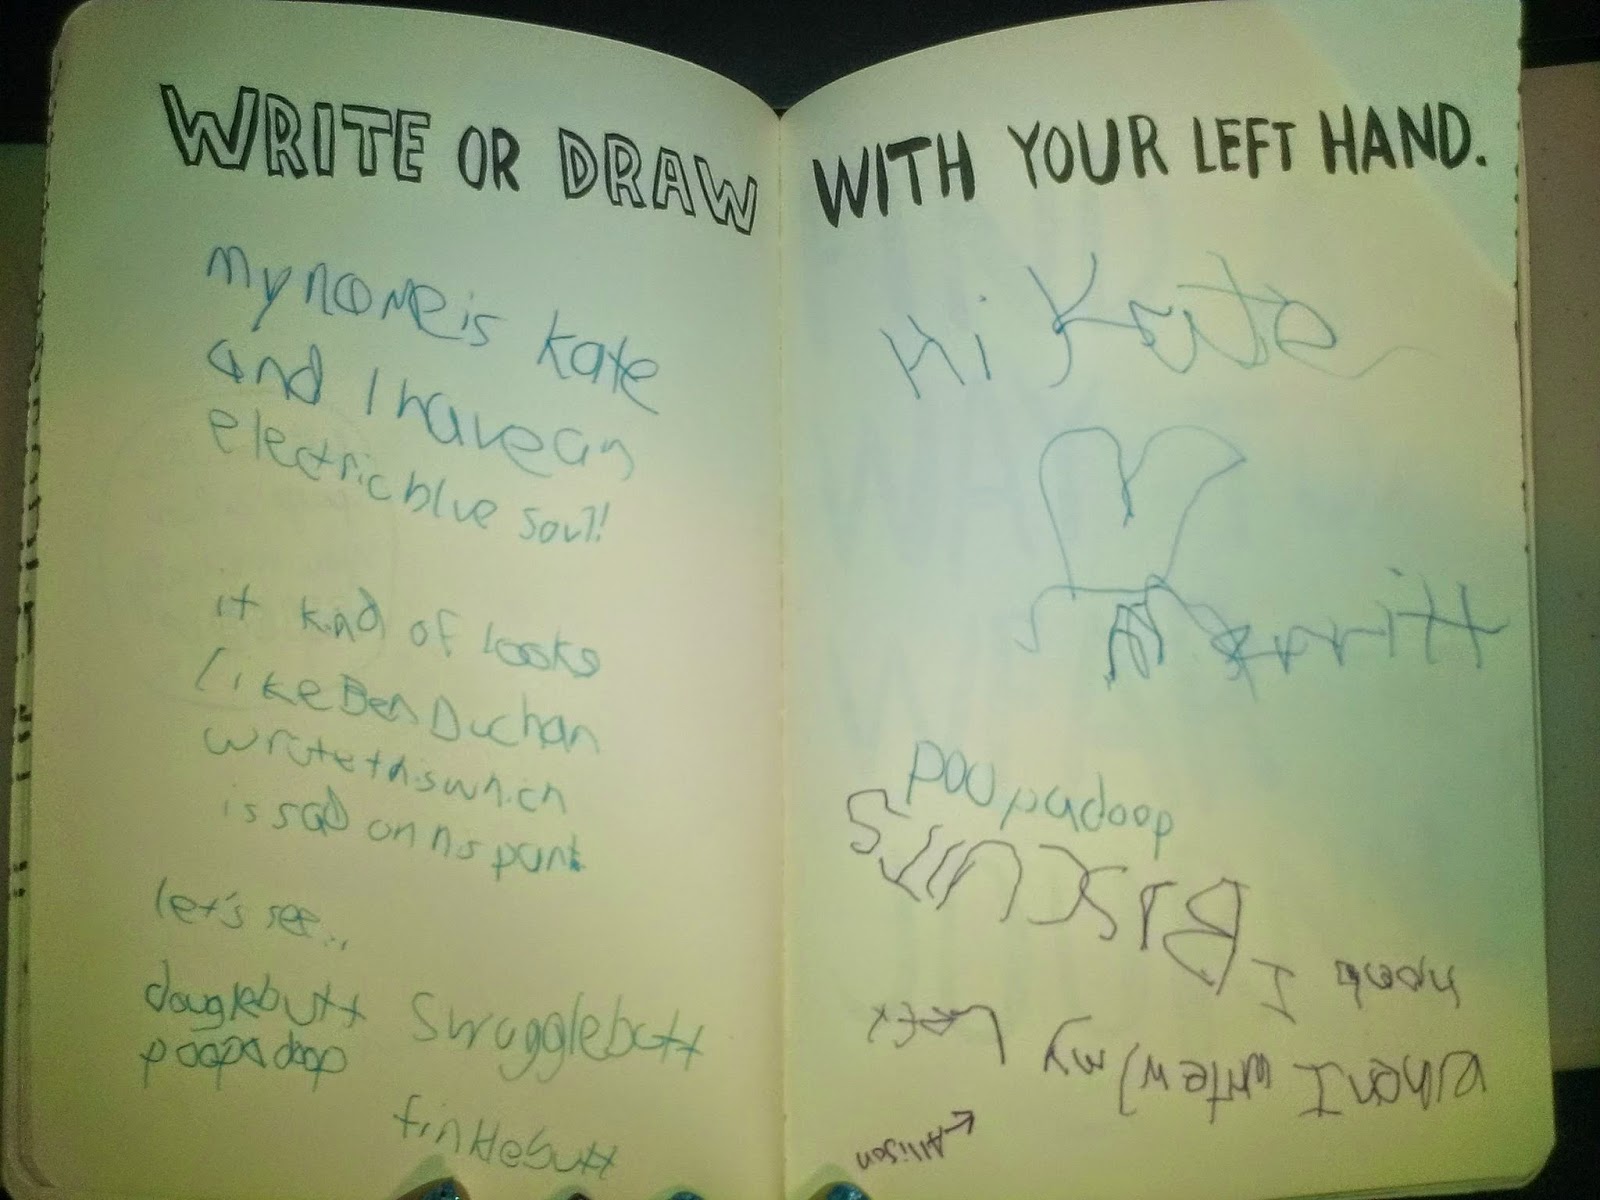 WRITE OR DRAW WITH YOUR LEFT HAND.
my name is kate
and I have an
electric blue soul!
it kind of looks
like Ben Duchan
wrote this which
is sad on his part
let's see..
douglebutt
poopadoop
Swugglebutt
finklebutt
Hi Kate
poopadoop
when I write w/ my
left hand I
BISCUITS
Allison